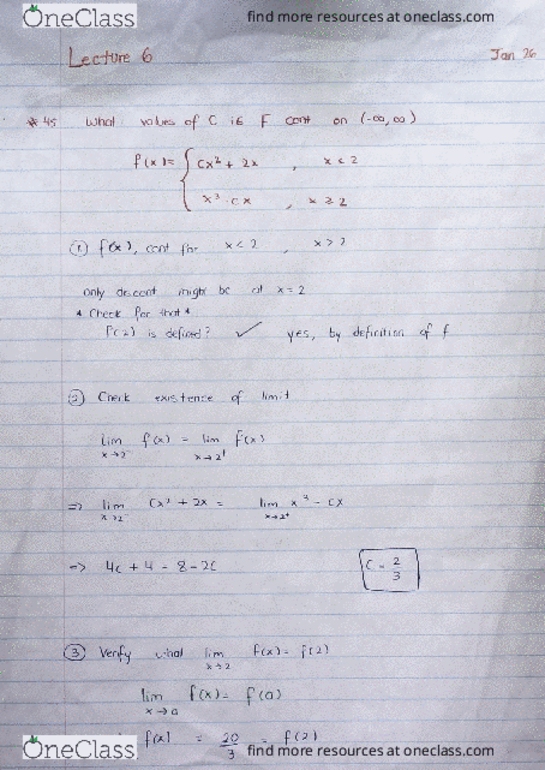 OneClass find more resources at oneclass.com
Lecture 6 Jan 26
* 45 What values of C is F cont on (-∞, ∞)
f(x) = { Cx² + 2x , x < 2
x³ - cx , x ≥ 2
① f(x), cont for x < 2 , x > 2
only discont might be at x = 2
* Check for that *
f(2) is defined? ✓ yes, by definition of f
② Check existence of limit
lim x→2⁻ f(x) = lim x→2⁺ f(x)
=> lim x→2⁻ Cx² + 2x = lim x→2⁺ x³ - cx
=> 4c + 4 = 8 - 2c C = 2/3
③ Verify what lim x→2 f(x) = f(2)
lim x→a f(x) = f(a)
f(x) = 20/3 = f(2)
OneClass find more resources at oneclass.com